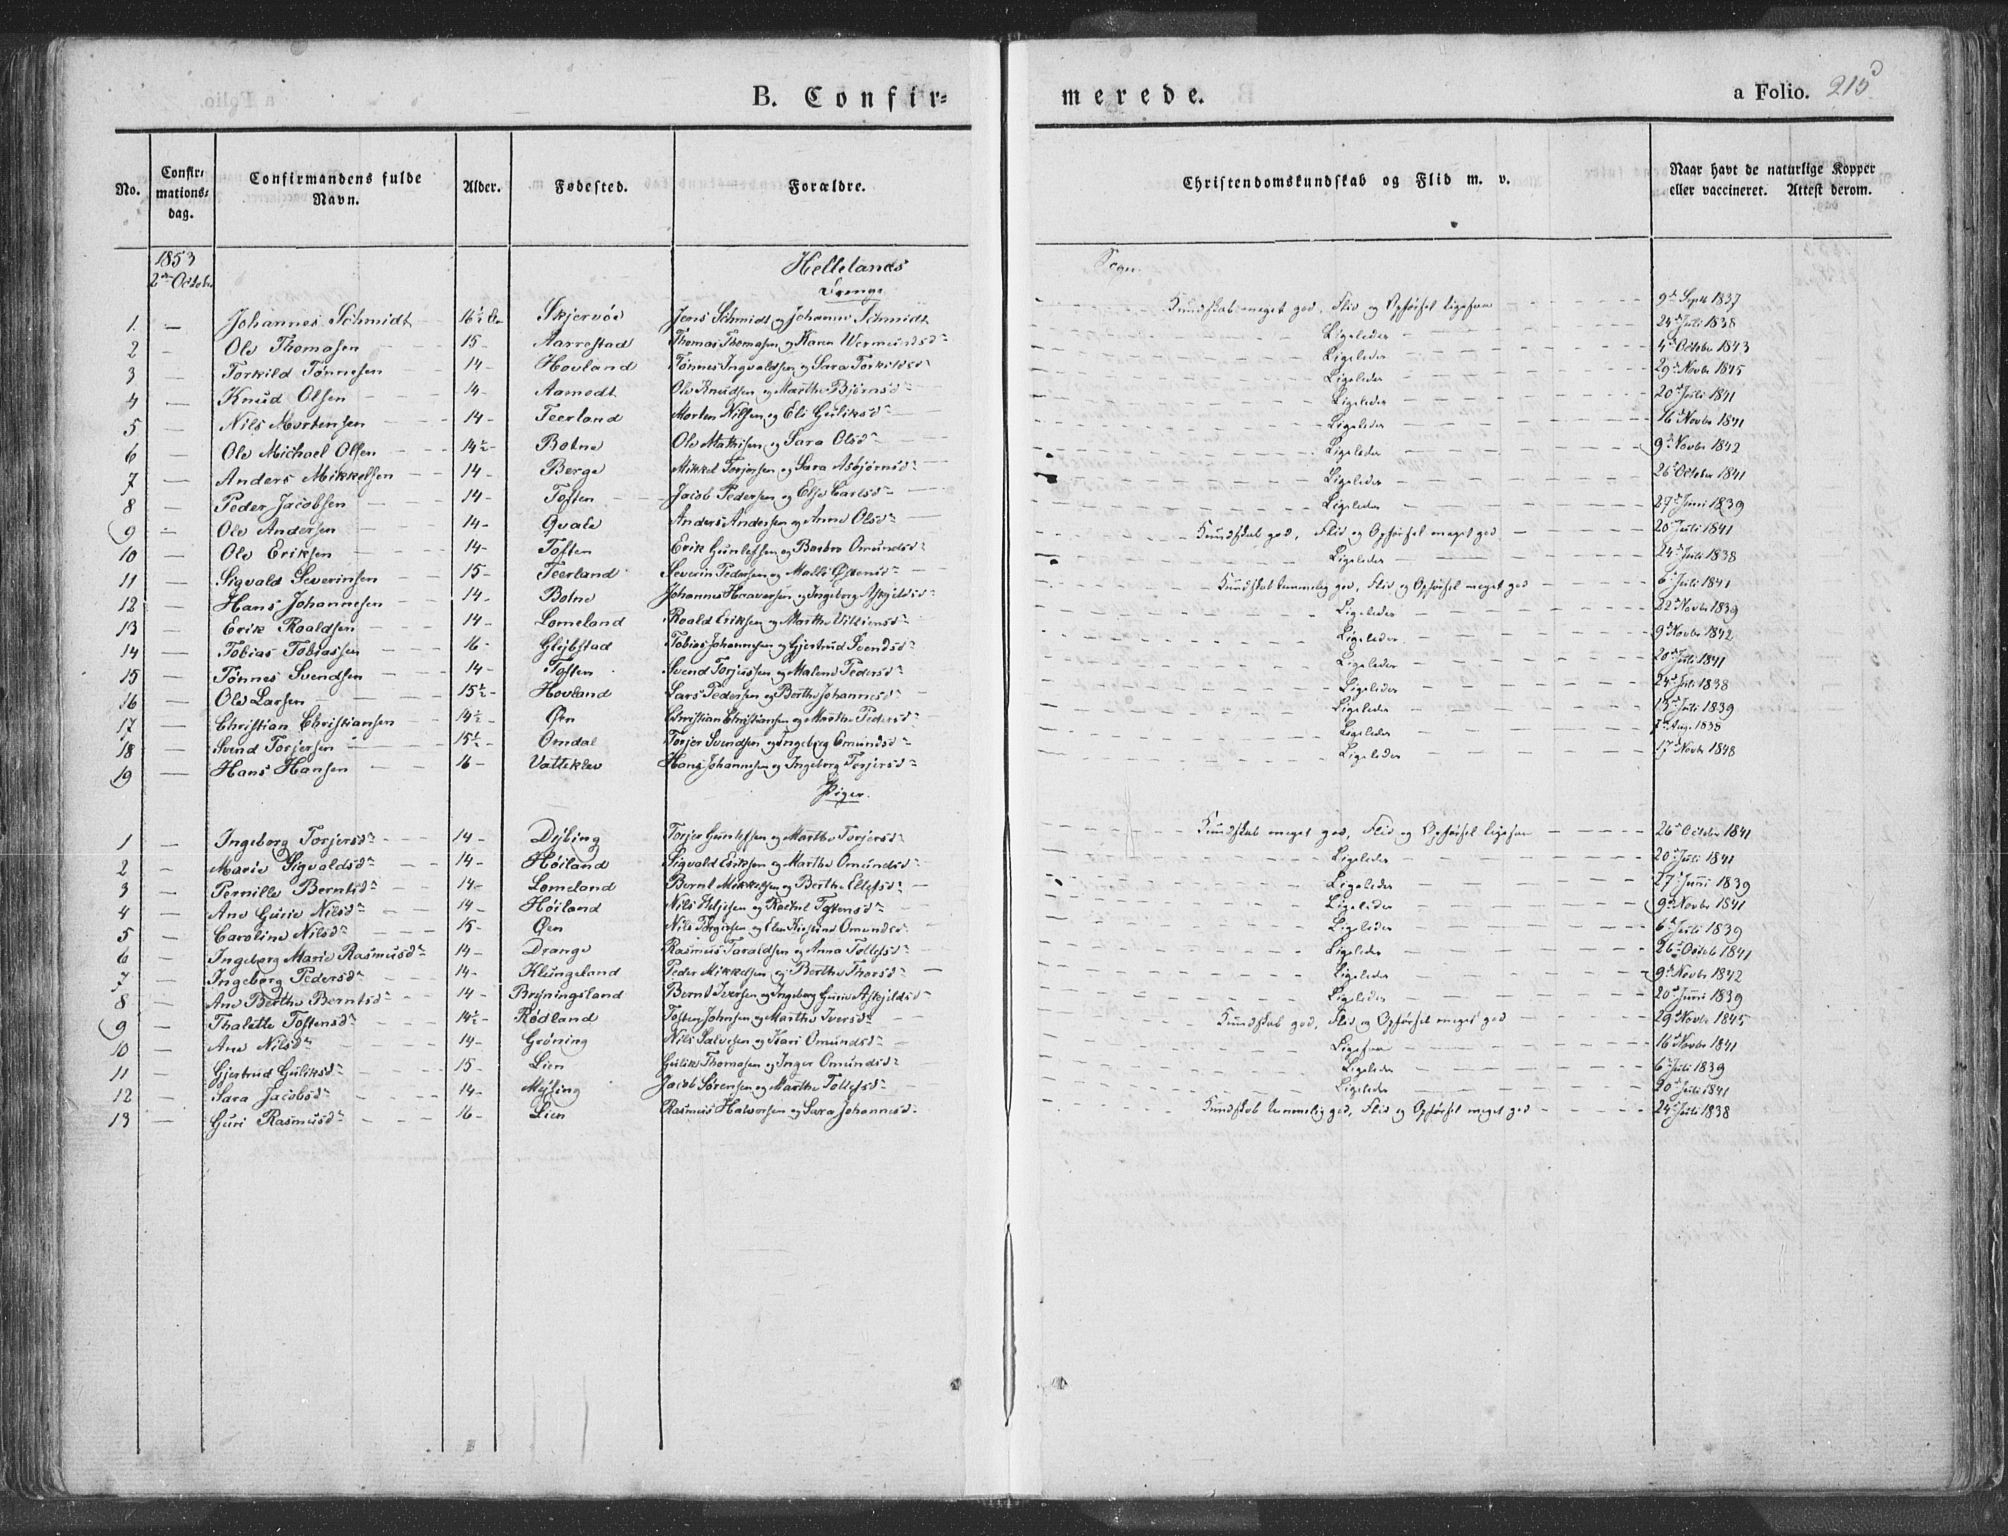 B. Confir=
merede.
a Folio. 215
No.
Confir-
mations-
dag.
Confirmandens fulde
Navn.
Alder.
Fødested.
Forældre.
Christendomskundskab og Flid m. v.
Naar havt de naturlige Kopper
eller vaccineret. Attest derom.
1853
2den October
Hellelands Sogn.
Drenge
1. — Johannes Schmidt 16½ Skjervøe Jens Schmidt og Johanne Schmidt Kundskab meget god, Flid og Opførsel ligesaa 9de Septr 1837
2 — Ole Thomasen 15 Aarrestad Thomas Thomasen og Karen Wermundsd. Ligeledes 24de Juli 1838
3 — Torkild Tønnesen 14 Hovland Tønnes Ingvaldsen og Sara Torkildsd. Ligeledes 4de October 1843
4 — Knud Olsen 14 Aamodt Ole Knudsen og Marthe Bjørnsd. Ligeledes 29de Novbr 1845
5 — Nils Mortensen 14 Teerland Morten Nilsen og Eli Guliksd. Ligeledes 20de Juli 1841
6 — Ole Michael Olsen 14½ Botne Ole Mathisen og Sara Olsd. Ligeledes 16de Novbr 1841
7 — Anders Mikkelsen 14 Berge Mikkel Torjersen og Sara Asbjørnsd. Ligeledes 9de Novbr 1842
8 — Peder Jacobsen 14 Toften Jacob Pedersen og Else Carlsd. Ligeledes 26de October 1841
9 — Ole Andersen 14 Qvale Anders Andersen og Anne Olsd. Ligeledes 27de Juni 1839
10 — Ole Eriksen 14 Toften Erik Gunlefsen og Barbro Omundsd. Kundskab god, Flid og Opførsel meget god 20de Juli 1841
11 — Sigvald Severinsen 15 Teerland Severin Pedersen og Malle Østensd. Ligeledes 24de Juli 1838
12 — Hans Johannesen 14 Botne Johannes Haaversen og Ingeborg Askjeldsd. Kundskab temmelig god, Flid og Opførsel meget god 6te Juli 1841
13 — Erik Roaldsen 14 Lomeland Roald Eriksen og Marthe Villiensd. Ligeledes 22de Novbr 1839
14 — Tobias Tobiassen 16 Glybstad Tobias Johannesen og Gjertrud Svendsd. Ligeledes 9de Novbr 1842
15 — Tønnes Svendsen 14 Toften Svend Torjussen og Malene Pedersd. Ligeledes 20de Juli 1841
16 — Ole Larsen 15½ Hovland Lars Pedersen og Berthe Johannesd. Ligeledes 24de Juli 1838
17 — Christian Christiansen 14½ Øen Christian Christiansen og Marthe Pedersd. Ligeledes Juli 1839
18 — Svend Torjersen 15½ Omdal Torjer Svendsen og Ingeborg Omundsd. Ligeledes 7de Aug. 1838
19 — Hans Hansen 16 Vatteklev Hans Johannesen og Ingeborg Torjersd. Ligeledes 17de Novbr 1848
Piger.
1 — Ingeborg Torjersd. 14 Dybing Torjer Gunlefsen og Marthe Torjersd. Kundskab meget god, Flid og Opførsel ligesaa 26de October 1841
2 — Marie Sigvaldsd. 14 Høiland Sigvald Eriksen og Marthe Omundsd. Ligeledes 20de Juli 1841
3 — Pernille Berntsd. 14 Lomeland Bernt Mikkelsen og Berthe Ellefsd. Ligeledes 27de Juni 1839
4 — Ane Gurie Nilsd. 14 Høiland Nils Steljesen og Rachel Tostensd. Ligeledes 9de Novbr 1841
5 — Caroline Nilsd. 15 Øen Nils Torgersen og Elen Kirstine Omundsd. Ligeledes 6te Juli 1839
6 — Ingeborg Marie Rasmusd. 14 Drange Rasmus Taraldsen og Anna Tollefsd. Ligeledes 26de Octob 1841
7 — Ingeborg Pedersd. 14 Klungeland Peder Mikkelsen og Berthe Thorsd. Ligeledes 9de Novbr 1842
8 — Ane Berthe Berntsd. 14 Bryningsland Bernt Iversen og Ingeborg Gurie Askjeldsd. Ligeledes 20de Juni 1839
9 — Thalette Tostensd. 14½ Rødland Tosten Johnsen og Marthe Iversd. Kundskab god, Flid og Opførsel meget god 29de Novbr 1845
10 — Ane Nilsd. 14 Grøning Nils Salvesen og Kari Omundsd. Ligesaa 16de Novbr 1841
11 — Gjertrud Guliksd. 15 Lien Gulik Thomasen og Inger Omundsd. Ligeledes 6te Juli 1839
12 — Sara Jacobsd. 14 Mysing Jacob Sørensen og Marthe Tollefsd. Ligeledes 20de Juli 1841
13 — Guri Rasmusd. 16 Lien Rasmus Halvorsen og Sara Johannesd. Kundskab temmelig god, Flid og Opførsel meget god 24de Juli 1838